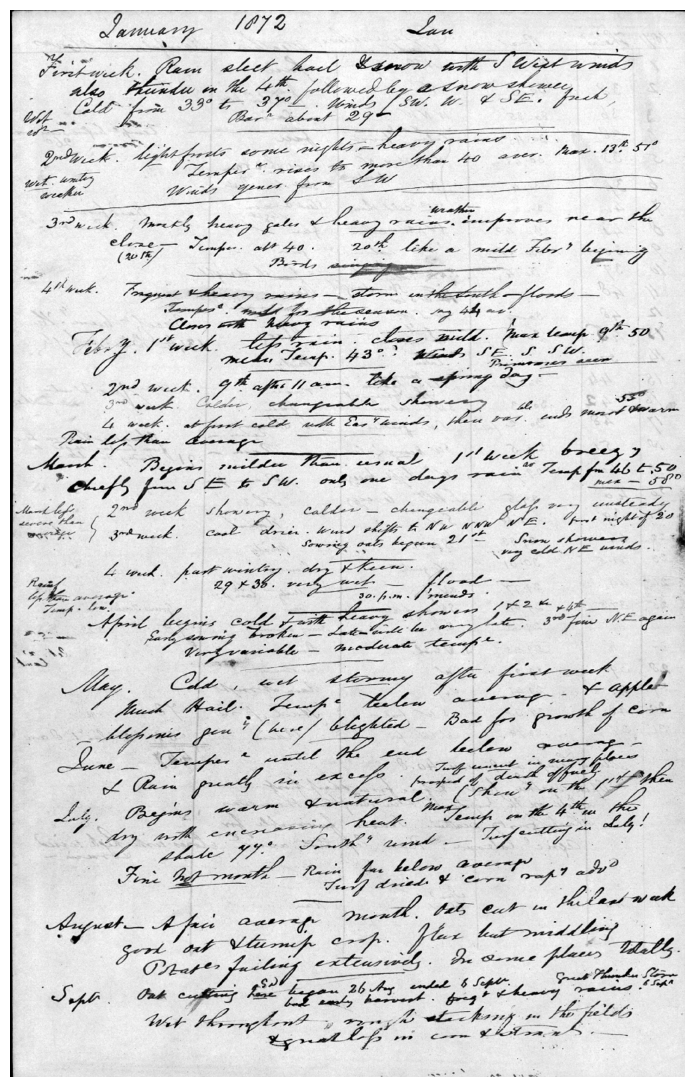 January 1872 Jan
First week. Rain sleet hail & snow with S West winds
also thunder on the 4th. followed by a snow shower
Cold from 33° to 37° — Winds (SW. W. & SE. fresh,
Bar about 29 —
2nd week. light frosts some nights — heavy rains
Temper rises to more than 40 aver. Max. 13th 51°
Wet. wintry
weather
Winds genes from SW
3rd week. Mostly heavy gales & heavy rains. weather improves near the
close — Temper. abt 40. 20th like a mild Febry begining
(20th)
Birds singing
4th week. Frequent & heavy rains — storm in the South & floods —
Temper. mild for the season.
Closes with heavy rains
Febry. 1st week. less rain. closes mild. Max temp 9th. 50
mean Temp. 43°. Winds S E. S. SW.
Primroses seen
2nd week. 9th after 11 am. like a spring day
3rd week Colder, changeable Showery 53°
4 week. at first cold with East winds, then var. ends moist & warm
Rain less than average
March. Begins milder than usual 1st week breezy
chiefly from S E to S W. only one days rain Temp fm 46 to 50
max — 58°
March less
severe than
average
2nd week showery, colder — changeable glass very unsteady
3rd week. cool drier. Wind shifts to NW NNW N E. frost night of 20
Sowing oats begun 21st Snow showers
very cold N E winds.
4 week. part wintry. dry & keen.
29 & 30. very wet — flood —
30. p.m. mends.
Rain
less than average
Temp. low.
April begins cold & with heavy showers 1 & 2. 3rd & 4th fine N.E again
Early sowing broken — Later will be very late.
Very variable — moderate temp.
May. Cold, wet stormy after first week
Much Hail. Temp below average. & apple
blossoms gen (here) blighted — Bad for growth of corn
June — Temper until the end below average —
& Rain greatly in excess. Turf uncut in many places
July. Begins warm & natural. (Shen on the 1st) then
dry with encreasing heat. Max Temp on the 4th in the
shade 77° South wind — Turf cutting in July!
Fine hot month — Rain far below average
Turf dried & corn rapy advd
August — A fair average month. Oats cut in the last week
good oat & turnip crop. Flax but middling
Potatoes failing extensively. In some places totally.
Septr. Oat cutting here began 26 Aug ended 6 Septr. Great Thunder Storm
bad early harvest. freqt & heavy rains. 6 Sept
Wet throughout, rough stacking in the fields
& great loss in corn &